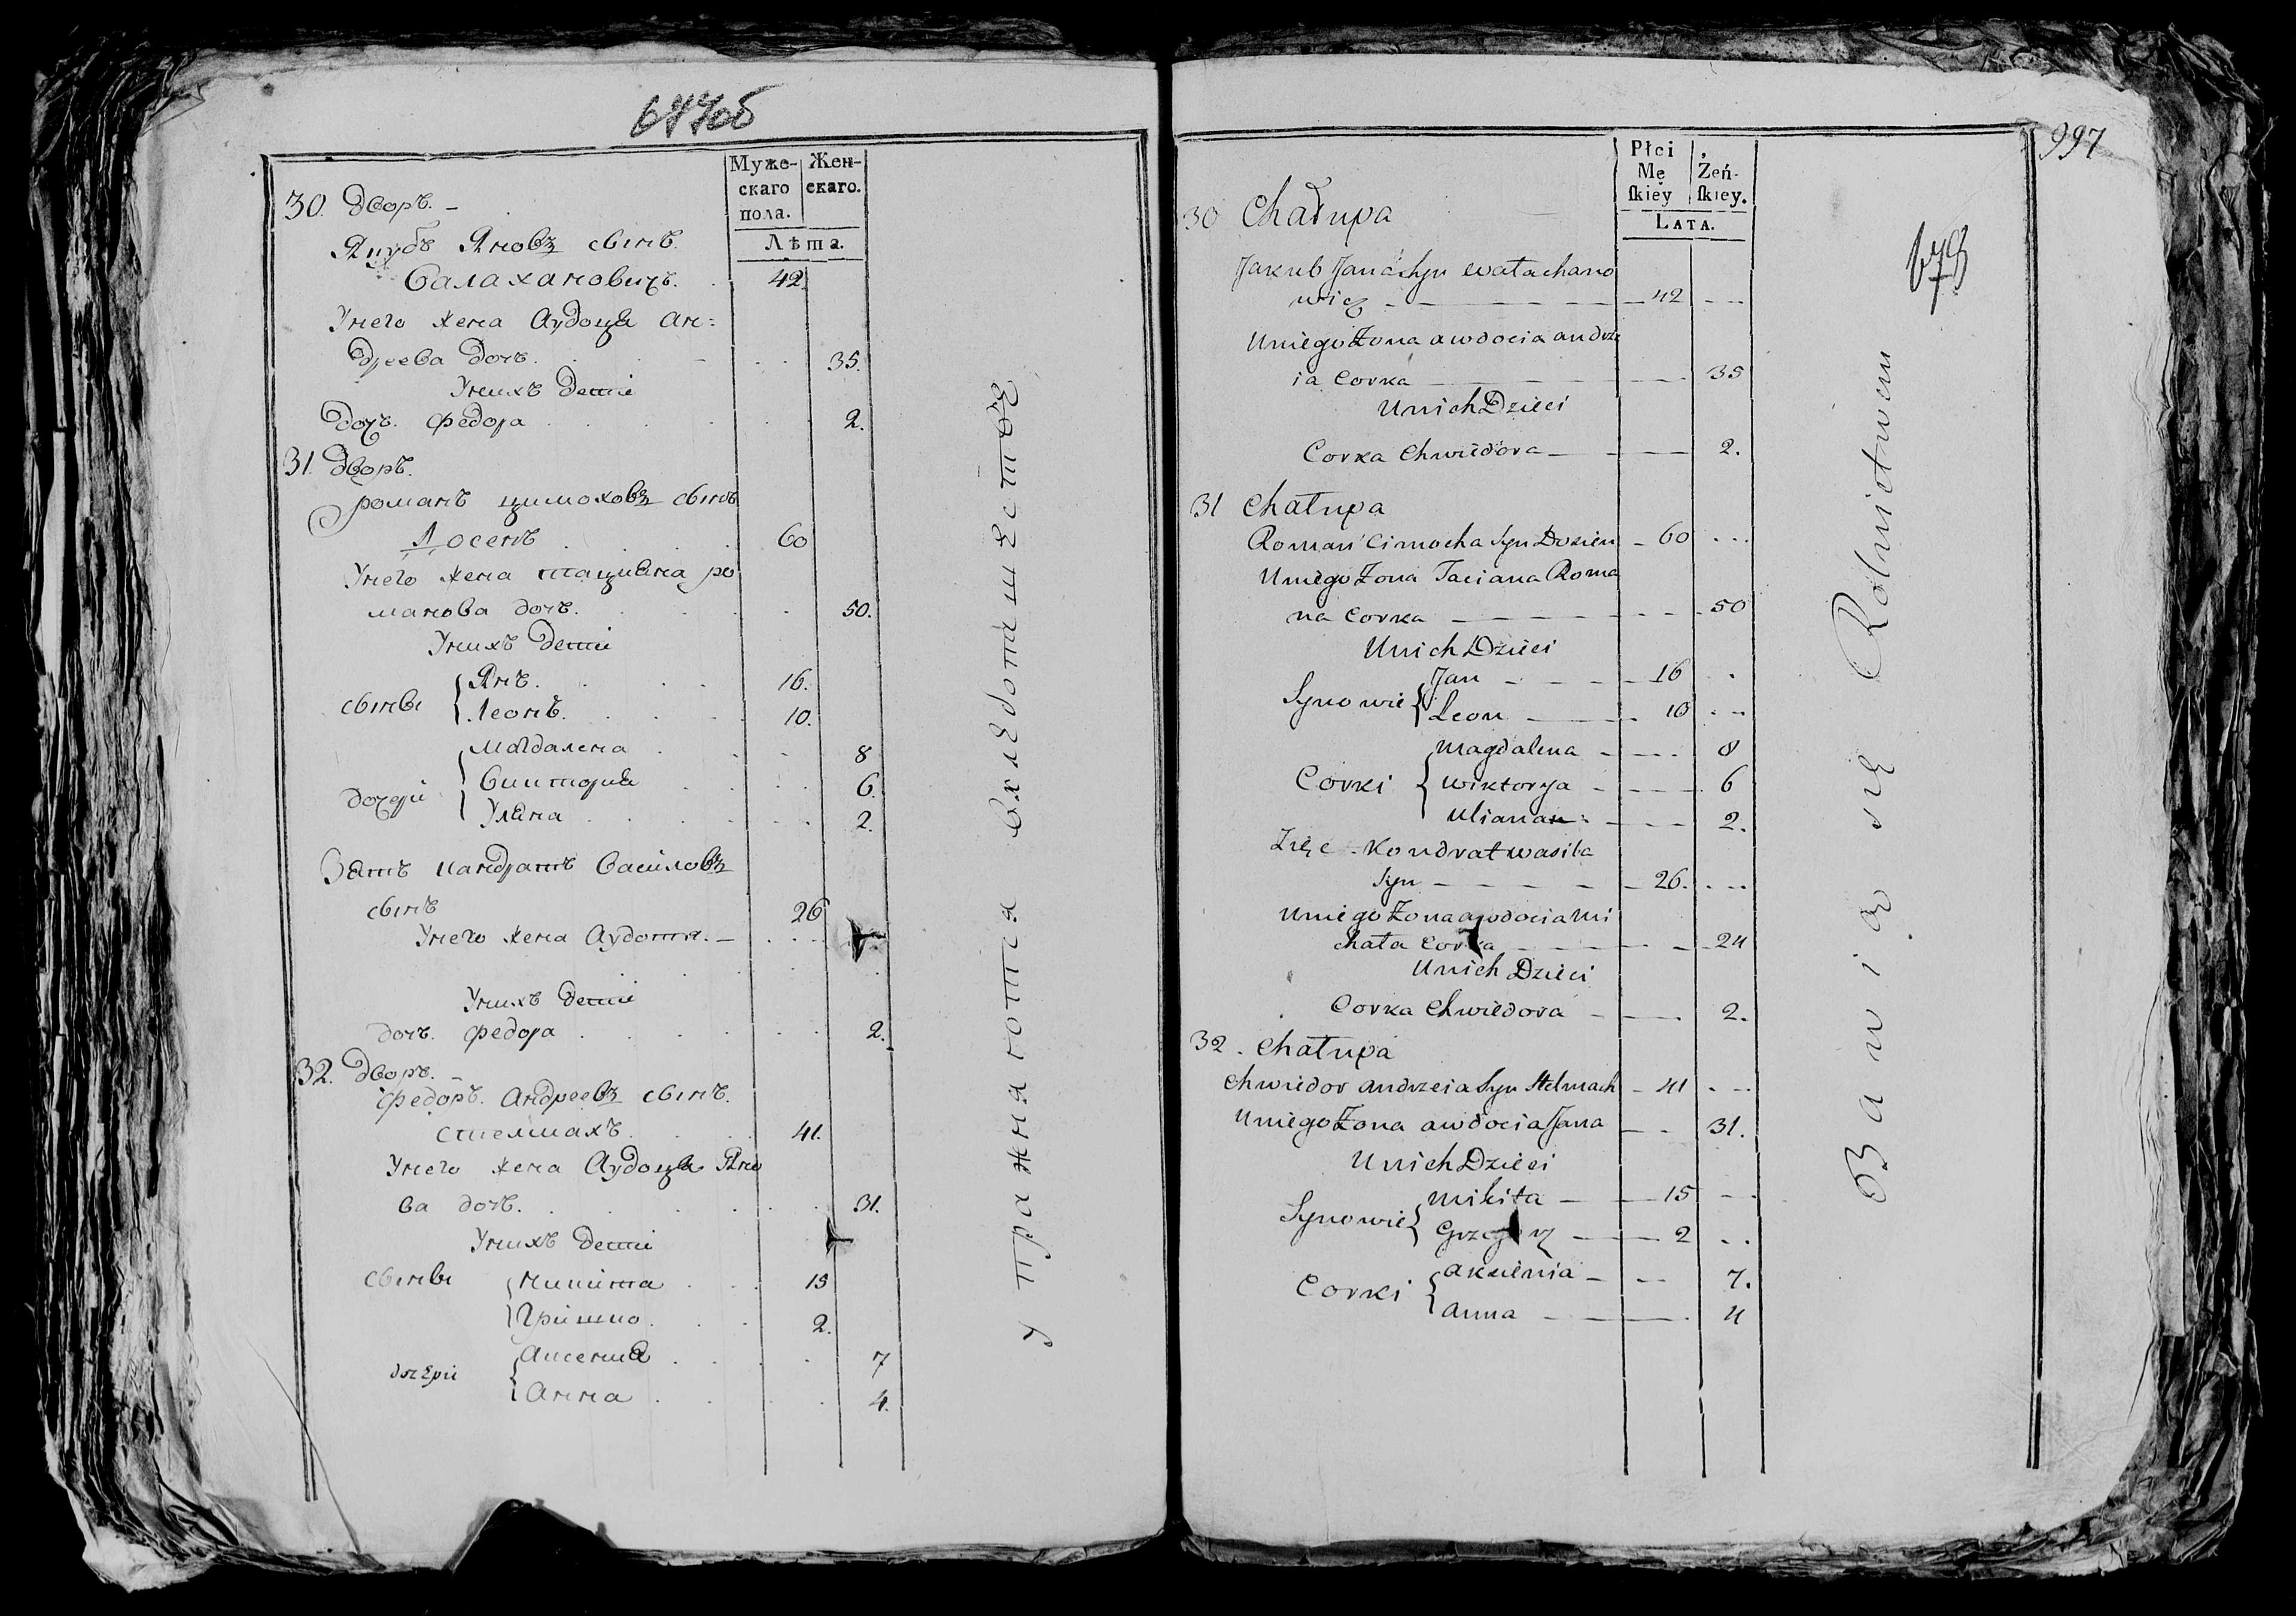 677об
Муже- Жен-
скаго скаго.
пола.
Лѣта.
30. Дворъ. -
Якубъ Яновъ сынъ
Валахановичъ. 42.
Унего жена Аудоця Ан=
дреева дочь. 35.
Унихъ дети
Дочь. Федора 2.
31. Дворъ.
Романъ Цимоховъ сынъ
Лосень 60
Унего жена Тацияна Ро
манова дочь. 50.
Унихъ дети
сыны { Янъ. 16.
Леонъ. 10.
дочери { Магдалена 8
Виктория 6.
Уляна 2.
Зять Кандратъ Василовъ
сынъ 26
Унего жена Аудотя. -
Унихъ дети
дочь. Федора 2.
32. Дворъ. -
Федоръ. Андреевъ сынъ.
Стелмахъ 41.
Унего жена Аудоця Яно
ва дочь. 31.
Унихъ дети
сыны { Никита 15
Гришко. 2.
дочери { Аксеня 7
Анна 4.
упражняются вхлебопашестве
997
679
Płci Żeń-
Mę skiey.
skiey
LATA.
30 Chałupa
Jakub Jana Syn Wałachano
wicz 42
Uniego Żona Awdocia Andrze
ia Corka 35
Unich Dzieci
Corka Chwiedora 2.
31 Chałupa
Roman Cimocha Syn Łosien 60
Uniego Żona Taciana Roma
na Corka 50
Unich Dzieci
Synowie { Jan 16
Leon 10
Corki { Magdalena 8
Wiktorya 6
Uliana 2.
Zięć Kondrat Wasila
Syn 26.
Uniego Żona Awdocia Mi
chała Corka 24
Unich Dzieci
Corka Chwiedora 2.
32. Chałupa
Chwiedor Andrzeia Syn Stelmach 41
Uniego Żona Awdocia Jana 31.
Unich Dzieci
Synowie { Mikita 15
Grzegorz 2
Corki { Axienia 7.
Anna 4
Bawią się Rolnictwem